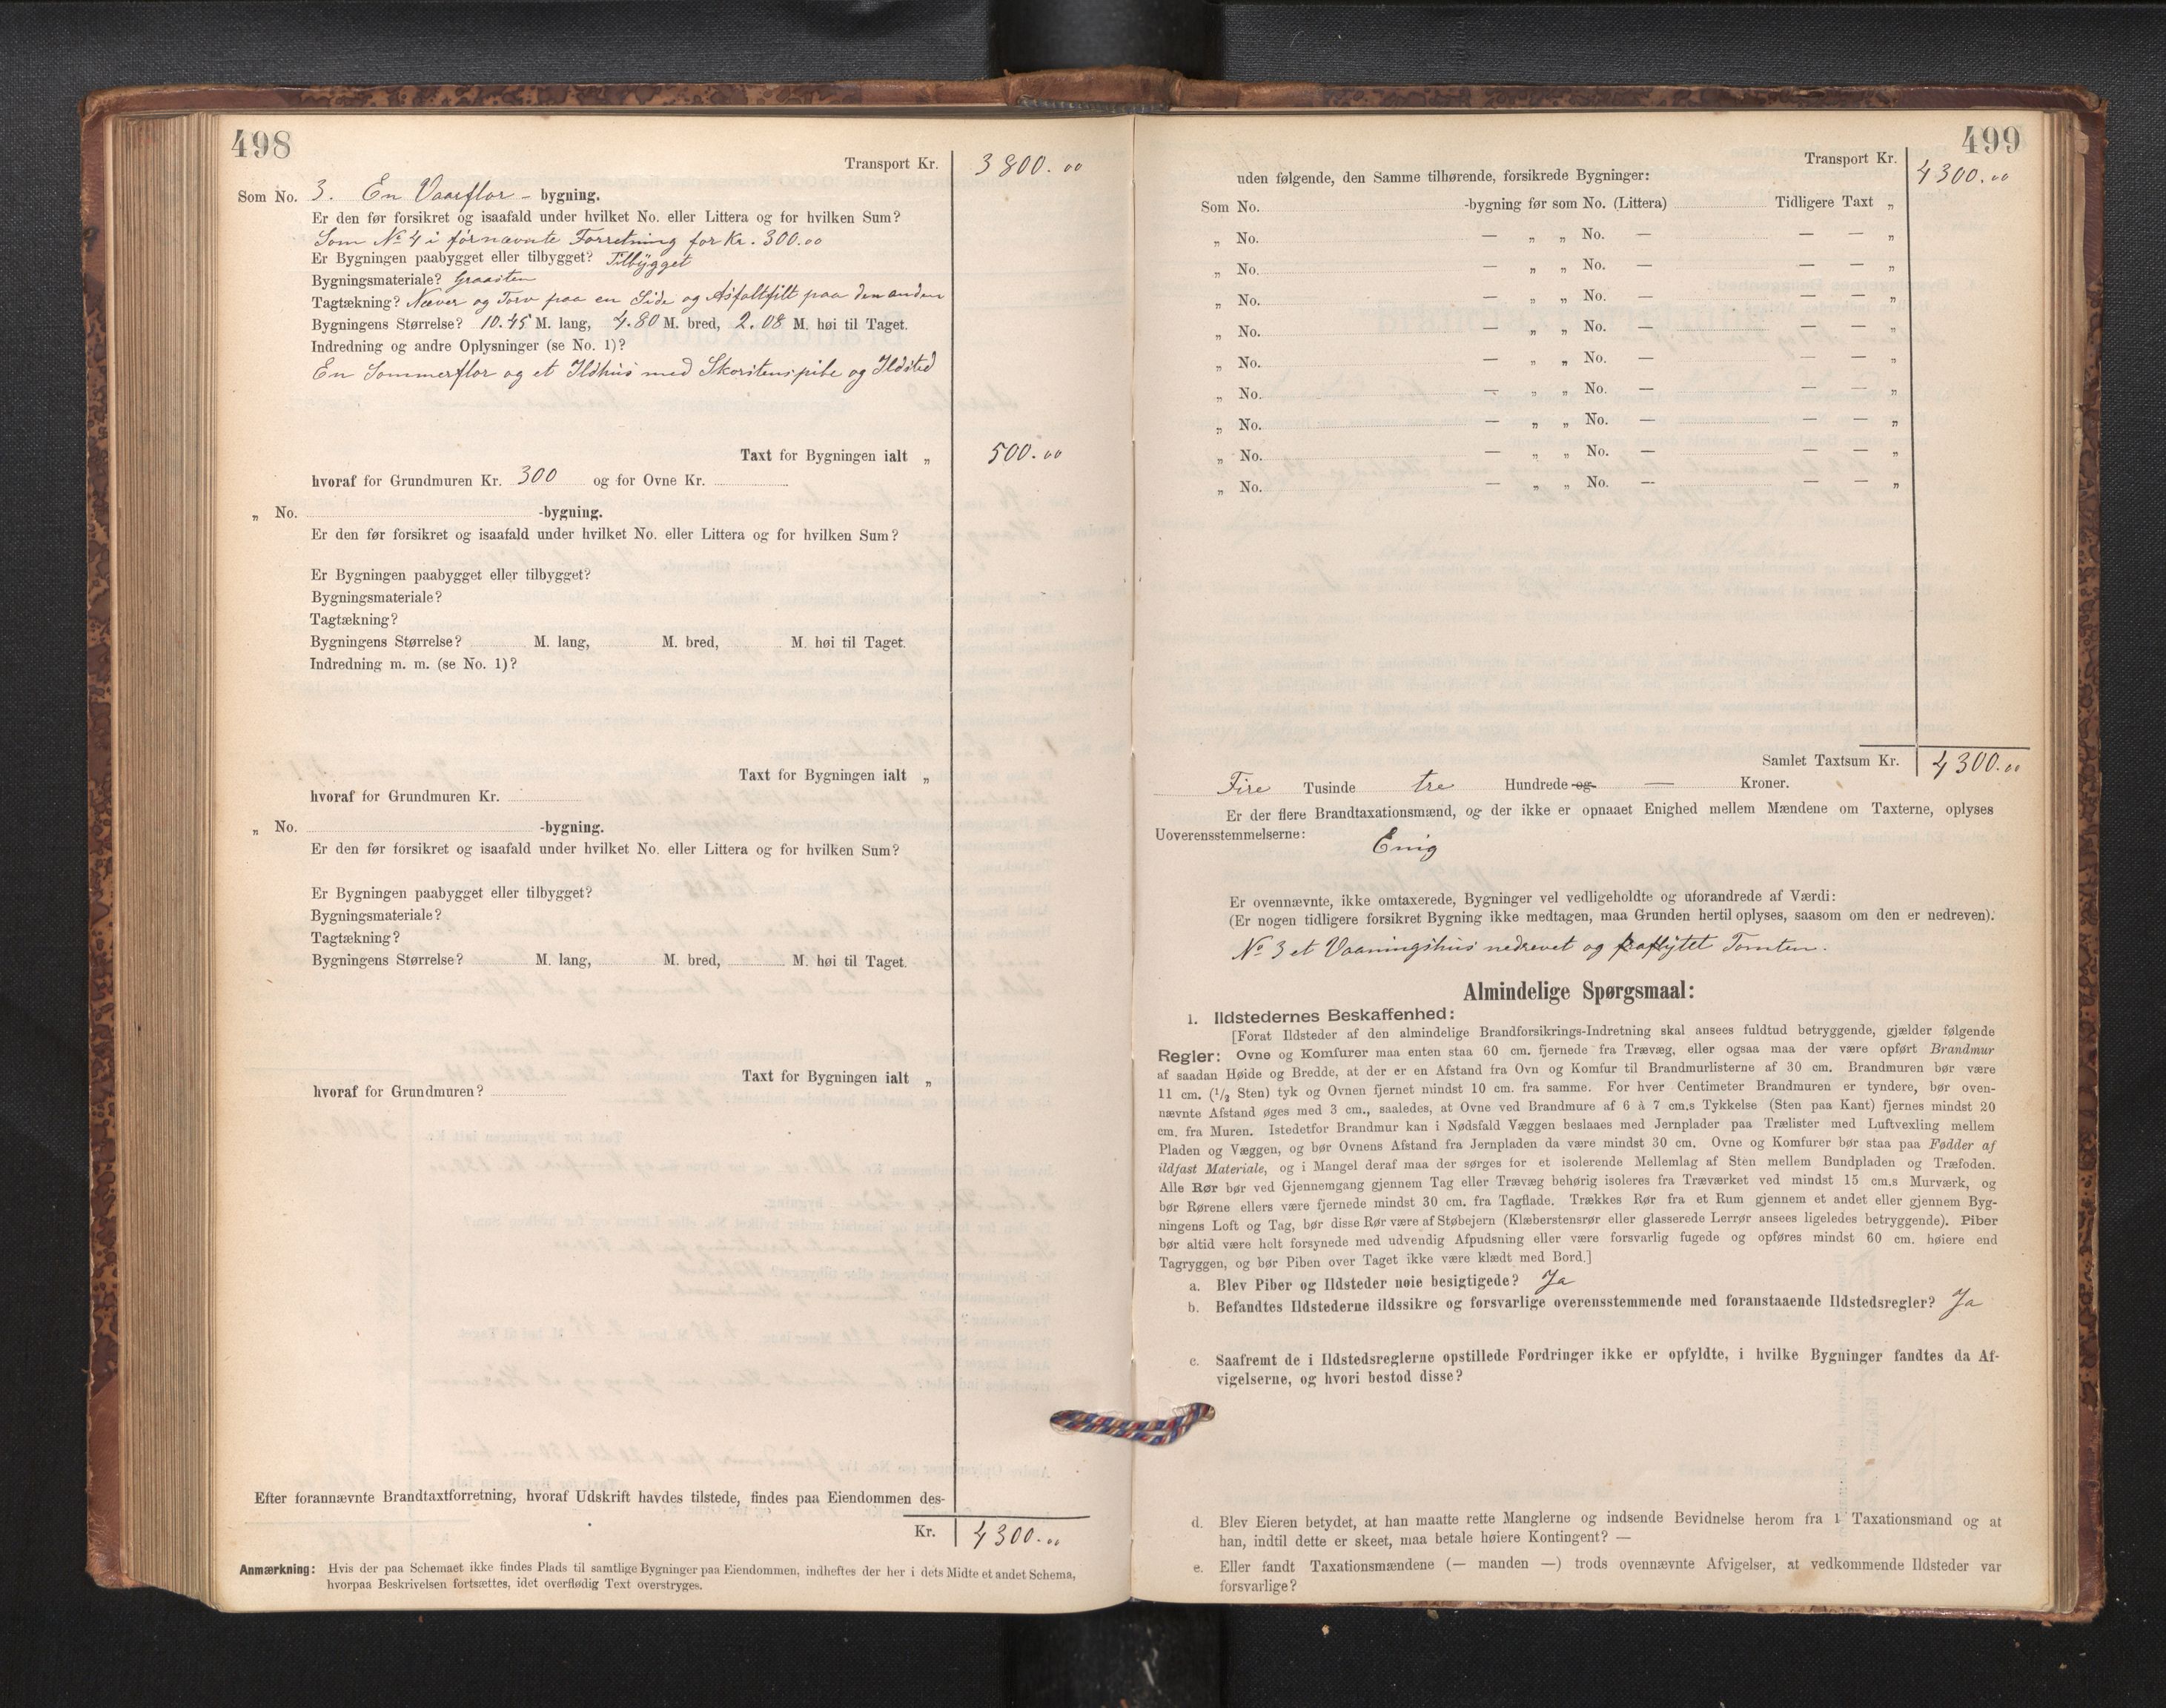 498
Transport Kr. 3800.00
Som No. 3. En Vaarflor - bygning.
Er den før forsikret og isaafald under hvilket No. eller Littera og for hvilken Sum?
Som No 4 i førnævnte Forretning for Kr. 300.00
Er Bygningen paabygget eller tilbygget? Tilbygget
Bygningsmateriale? Graasten
Tagtækning? Næver og Torv paa en Side og Asfaltfilt paa den anden
Bygningens Størrelse? 10.45 M. lang, 4.80 M. bred, 2.08 M. høi til Taget.
Indredning og andre Oplysninger (se No. 1)?
En Sommerflor og et Ildhus med Skorstenspibe og Ildsted
Taxt for Bygningen ialt „ 500.00
hvoraf for Grundmuren Kr. 300 og for Ovne Kr.
„ No. -bygning.
Er den før forsikret og isaafald under hvilket No. eller Littera og for hvilken Sum?
Er Bygningen paabygget eller tilbygget?
Bygningsmateriale?
Tagtækning?
Bygningens Størrelse? M. lang, M. bred, M. høi til Taget.
Indredning m. m. (se No. 1)?
Taxt for Bygningen ialt „
hvoraf for Grundmuren Kr.
„ No. -bygning.
Er den før forsikret og isaafald under hvilket No. eller Littera og for hvilken Sum?
Er Bygningen paabygget eller tilbygget?
Bygningsmateriale?
Tagtækning?
Bygningens Størrelse? M. lang, M. bred, M. høi til Taget.
Taxt for Bygningen ialt „
hvoraf for Grundmuren?
Efter forannævnte Brandtaxtforretning, hvoraf Udskrift havdes tilstede, findes paa Eiendommen des-
Kr. 4300.00
Anmærkning: Hvis der paa Schemaet ikke findes Plads til samtlige Bygninger paa Eiendommen, indheftes der her i dets Midte et andet Schema,
hvorpaa Beskrivelsen fortsættes, idet overflødig Text overstryges.
499
Transport Kr. 4300.00
uden følgende, den Samme tilhørende, forsikrede Bygninger:
Som No. -bygning før som No. (Littera) Tidligere Taxt „
„ No. — „ „ No. — — — „
„ No. — „ „ No. — — — „
„ No. — „ „ No. — — — „
„ No. — „ „ No. — — — „
„ No. — „ „ No. — — — „
„ No. — „ „ No. — — — „
„ No. — „ „ No. — — — „
„ No. — „ „ No. — — — „
„ No. — „ „ No. — — — „
Samlet Taxtsum Kr. 4300.00
Fire Tusinde tre Hundrede og — Kroner.
Er der flere Brandtaxationsmænd, og der ikke er opnaaet Enighed mellem Mændene om Taxterne, oplyses
Uoverensstemmelserne:
Enig
Er ovennævnte, ikke omtaxerede, Bygninger vel vedligeholdte og uforandrede af Værdi:
(Er nogen tidligere forsikret Bygning ikke medtagen, maa Grunden hertil oplyses, saasom om den er nedreven).
No 3 et Vaaningshus nedrevet og fraflytet Tomten.
Almindelige Spørgsmaal:
1. Ildstedernes Beskaffenhed:
[Forat Ildsteder af den almindelige Brandforsikrings-Indretning skal ansees fuldtud betryggende, gjælder følgende
Regler: Ovne og Komfurer maa enten staa 60 cm. fjernede fra Trævæg, eller ogsaa maa der være opført Brandmur
af saadan Høide og Bredde, at der er en Afstand fra Ovn og Komfur til Brandmurlisterne af 30 cm. Brandmuren bør være
11 cm. (1/2 Sten) tyk og Ovnen fjernet mindst 10 cm. fra samme. For hver Centimeter Brandmuren er tyndere, bør oven-
nævnte Afstand øges med 3 cm., saaledes, at Ovne ved Brandmure af 6 à 7 cm.s Tykkelse (Sten paa Kant) fjernes mindst 20
cm. fra Muren. Istedetfor Brandmur kan i Nødsfald Væggen beslaaes med Jernplader paa Trælister med Luftvexling mellem
Pladen og Væggen, og bør Ovnens Afstand fra Jernpladen da være mindst 30 cm. Ovne og Komfurer bør staa paa Fødder af
ildfast Materiale, og i Mangel deraf maa der sørges for et isolerende Mellemlag af Sten mellem Bundpladen og Træfoden.
Alle Rør bør ved Gjennemgang gjennem Tag eller Trævæg behørig isoleres fra Træværket ved mindst 15 cm.s Murværk, og
bør Rørene ellers være fjernede mindst 30 cm. fra Tagflade. Trækkes Rør fra et Rum gjennem et andet eller gjennem Byg-
ningens Loft og Tag, bør disse Rør være af Støbejern (Klæberstensrør eller glasserede Lerrør ansees ligeledes betryggende). Piber
bør altid være holt forsynede med udvendig Afpudsning eller være forsvarlig fugede og opføres mindst 60 cm. høiere end
Tagryggen, og bør Piben over Taget ikke være klædt med Bord.]
a. Blev Piber og Ildsteder nøie besigtigede? Ja
b. Befandtes Ildstederne ildssikre og forsvarlige overensstemmende med foranstaaende Ildstedsregler? Ja
c. Saafremt de i Ildstedsreglerne opstillede Fordringer ikke er opfyldte, i hvilke Bygninger fandtes da Af-
vigelserne, og hvori bestod disse?
d. Blev Eieren betydet, at han maatte rette Manglerne og indsende Bevidnelse herom fra 1 Taxationsmand og at
han, indtil dette er skeet, maa betale høiere Kontingent? —
e. Eller fandt Taxationsmændene (— manden —) trods ovennævnte Afvigelser, at vedkommende Ildsteder var
forsvarlige?